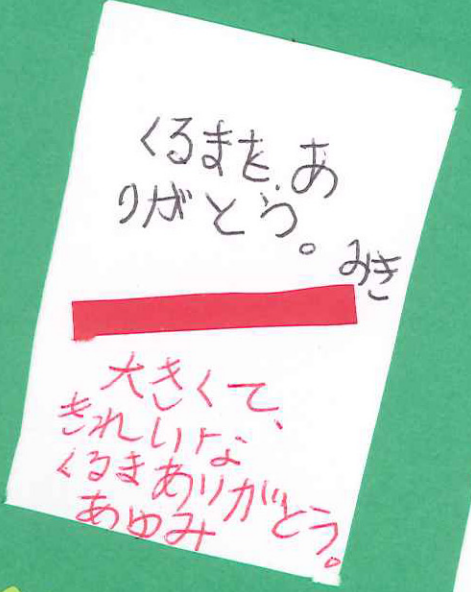 くるまを、あ
りがとう。
みき
大きくて、
きれいな
くるまありがとう。
あゆみ